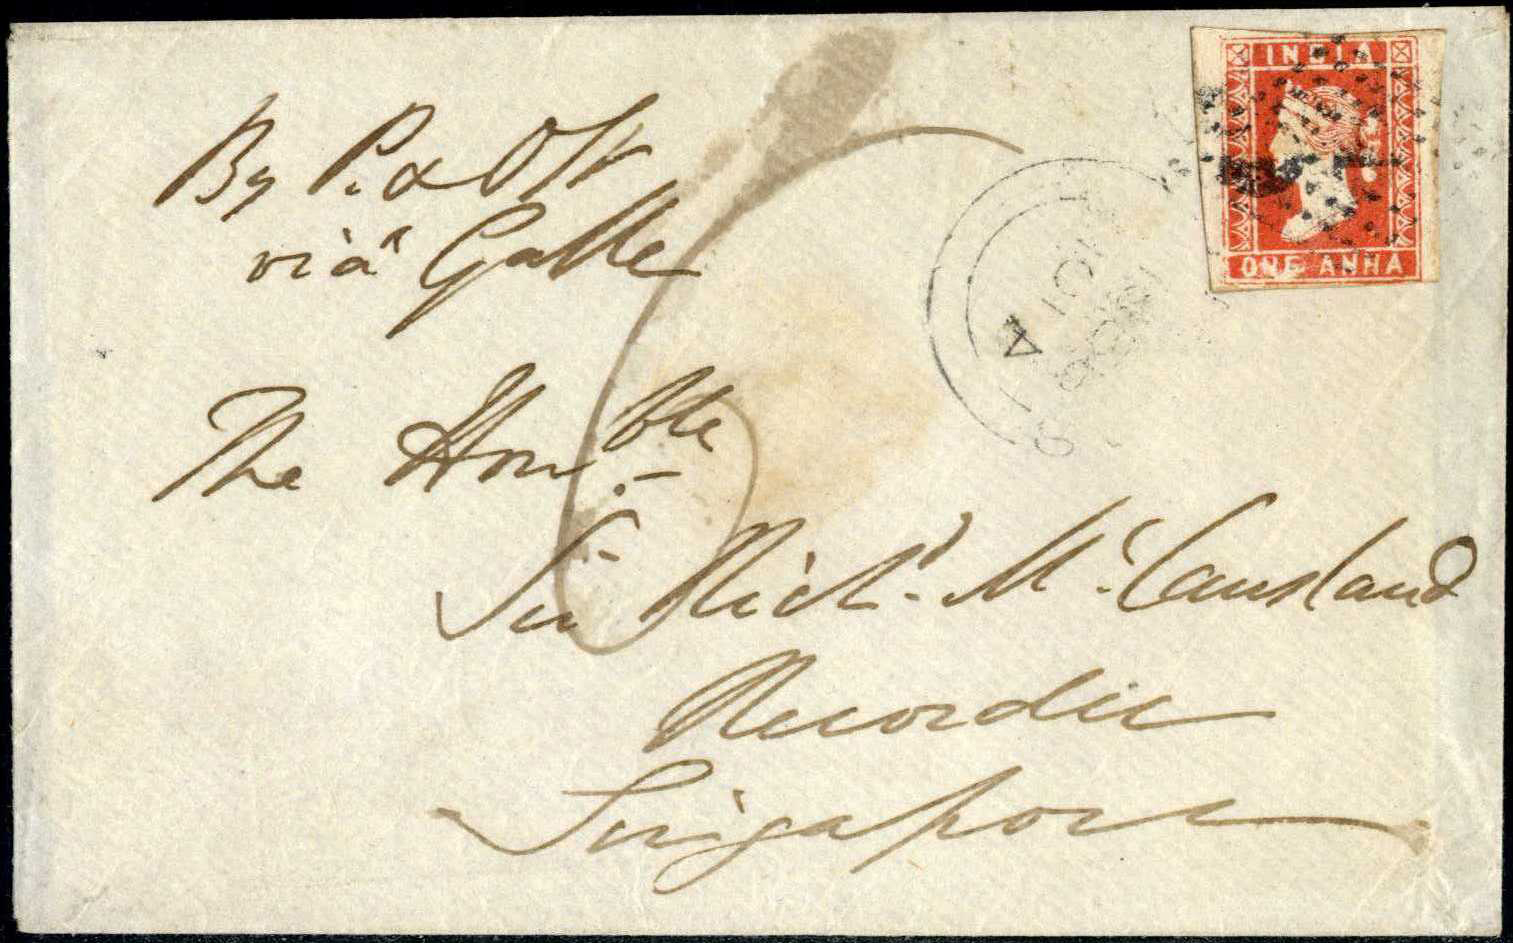 INDIA
ONE ANNA
By P. & O Str
viâ Galle
The Honble
Sir Richd. McCausland
Recorder
Singapore
6